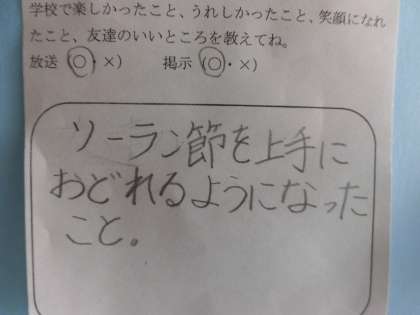 学校で楽しかったこと、うれしかったこと、笑顔になれ
たこと、友達のいいところを教えてね。
放送（○・×）　　掲示（○・×）
ソーラン節を上手に
おどれるようになった
こと。